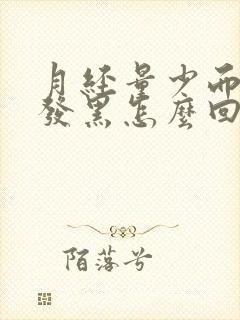 月经量少而
發黑怎麽回
陌落兮